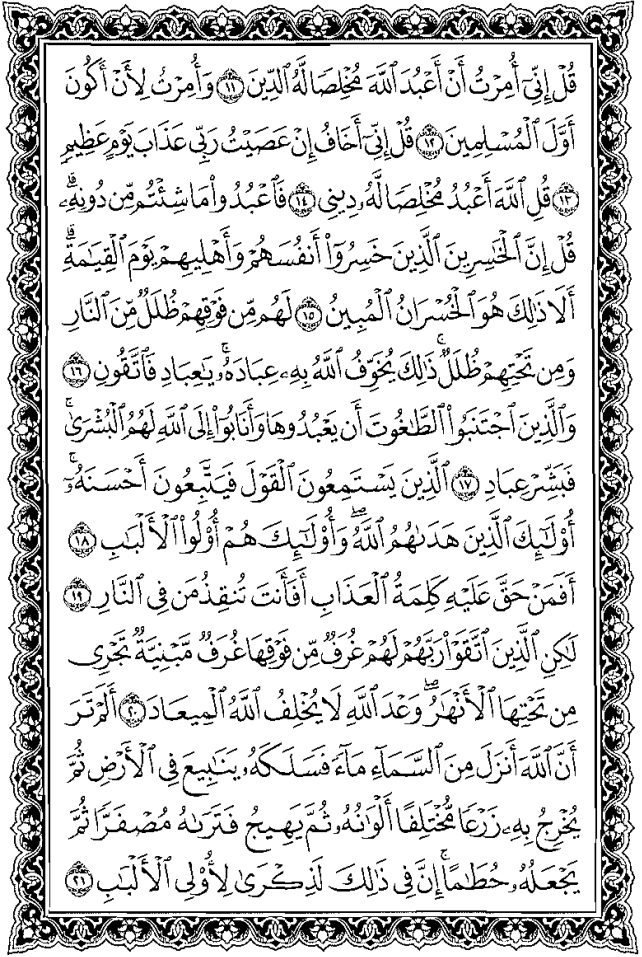 قُلْ إِنِّىٓ أُمِرْتُ أَنْ أَعْبُدَ ٱللَّهَ مُخْلِصًا لَّهُ ٱلدِّينَ ١١ وَأُمِرْتُ لِأَنْ أَكُونَ
أَوَّلَ ٱلْمُسْلِمِينَ ١٢ قُلْ إِنِّىٓ أَخَافُ إِنْ عَصَيْتُ رَبِّى عَذَابَ يَوْمٍ عَظِيمٍ
١٣ قُلِ ٱللَّهَ أَعْبُدُ مُخْلِصًا لَّهُۥ دِينِى ١٤ فَٱعْبُدُوا۟ مَا شِئْتُم مِّن دُونِهِۦ ۗ
قُلْ إِنَّ ٱلْخَـٰسِرِينَ ٱلَّذِينَ خَسِرُوٓا۟ أَنفُسَهُمْ وَأَهْلِيهِمْ يَوْمَ ٱلْقِيَـٰمَةِ ۗ
أَلَا ذَٰلِكَ هُوَ ٱلْخُسْرَانُ ٱلْمُبِينُ ١٥ لَهُم مِّن فَوْقِهِمْ ظُلَلٌ مِّنَ ٱلنَّارِ
وَمِن تَحْتِهِمْ ظُلَلٌ ۚ ذَٰلِكَ يُخَوِّفُ ٱللَّهُ بِهِۦ عِبَادَهُۥ ۚ يَـٰعِبَادِ فَٱتَّقُونِ ١٦
وَٱلَّذِينَ ٱجْتَنَبُوا۟ ٱلطَّـٰغُوتَ أَن يَعْبُدُوهَا وَأَنَابُوٓا۟ إِلَى ٱللَّهِ لَهُمُ ٱلْبُشْرَىٰ ۚ
فَبَشِّرْ عِبَادِ ١٧ ٱلَّذِينَ يَسْتَمِعُونَ ٱلْقَوْلَ فَيَتَّبِعُونَ أَحْسَنَهُۥٓ ۚ
أُو۟لَـٰٓئِكَ ٱلَّذِينَ هَدَىٰهُمُ ٱللَّهُ ۖ وَأُو۟لَـٰٓئِكَ هُمْ أُو۟لُوا۟ ٱلْأَلْبَـٰبِ ١٨
أَفَمَنْ حَقَّ عَلَيْهِ كَلِمَةُ ٱلْعَذَابِ أَفَأَنتَ تُنقِذُ مَن فِى ٱلنَّارِ ١٩
لَـٰكِنِ ٱلَّذِينَ ٱتَّقَوْا۟ رَبَّهُمْ لَهُمْ غُرَفٌ مِّن فَوْقِهَا غُرَفٌ مَّبْنِيَّةٌ تَجْرِى
مِن تَحْتِهَا ٱلْأَنْهَـٰرُ ۖ وَعْدَ ٱللَّهِ لَا يُخْلِفُ ٱللَّهُ ٱلْمِيعَادَ ٢٠ أَلَمْ تَرَ
أَنَّ ٱللَّهَ أَنزَلَ مِنَ ٱلسَّمَآءِ مَآءً فَسَلَكَهُۥ يَنَـٰبِيعَ فِى ٱلْأَرْضِ ثُمَّ
يُخْرِجُ بِهِۦ زَرْعًا مُّخْتَلِفًا أَلْوَٰنُهُۥ ثُمَّ يَهِيجُ فَتَرَىٰهُ مُصْفَرًّا ثُمَّ
يَجْعَلُهُۥ حُطَـٰمًا ۚ إِنَّ فِى ذَٰلِكَ لَذِكْرَىٰ لِأُو۟لِى ٱلْأَلْبَـٰبِ ٢١